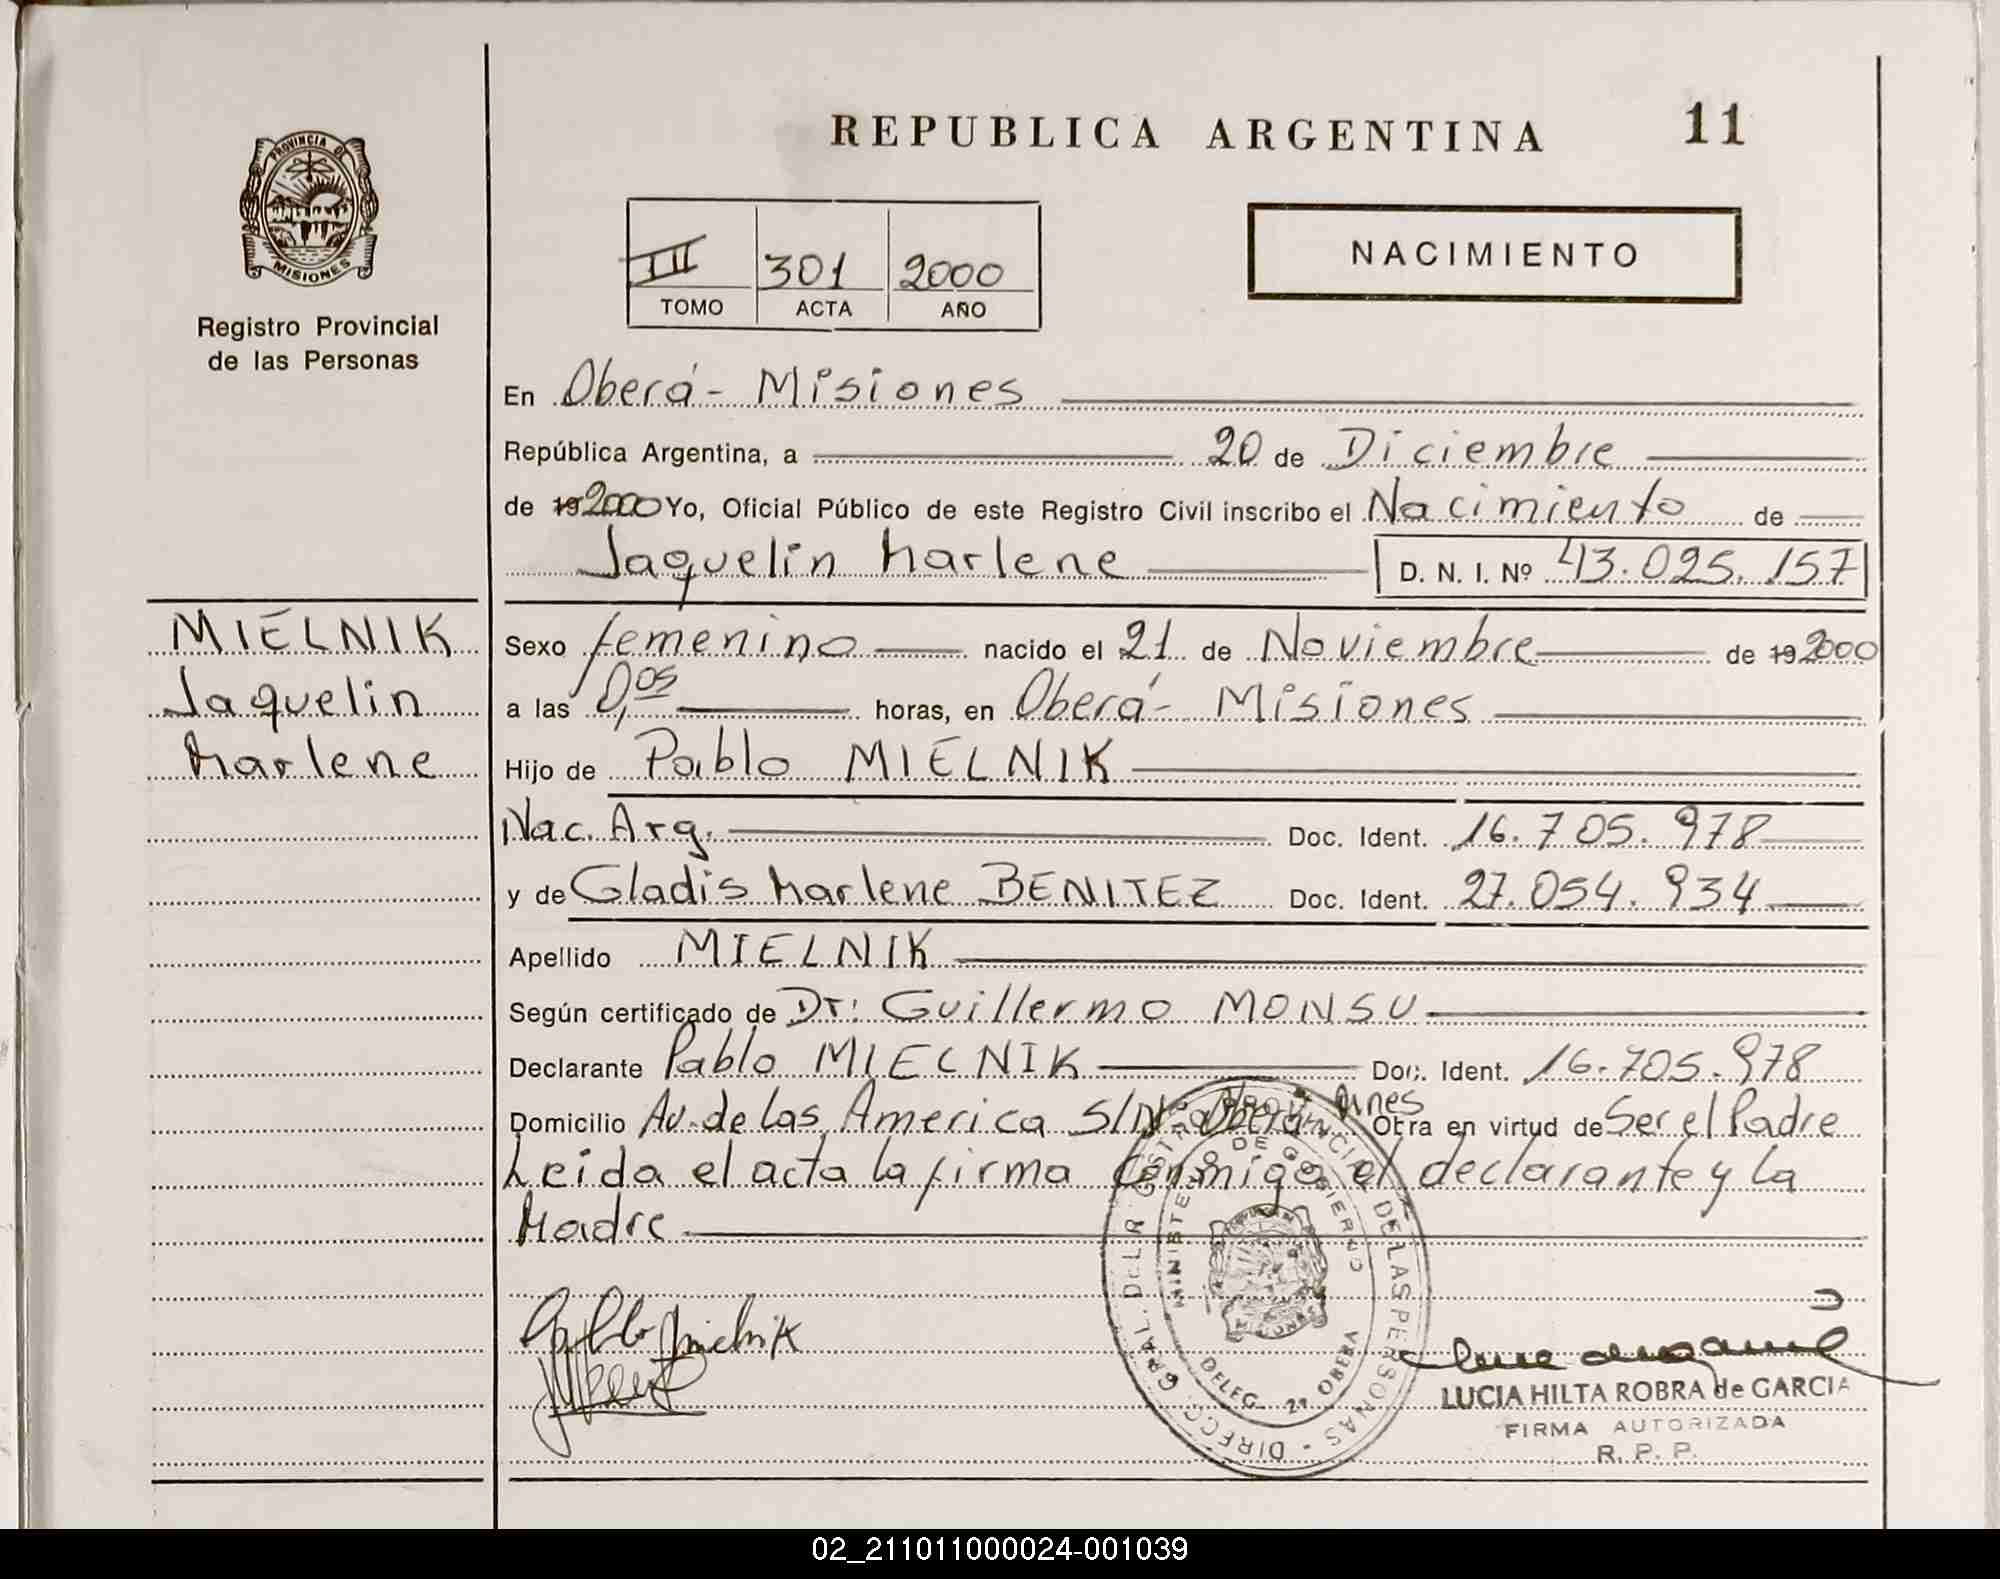 REPUBLICA ARGENTINA 11
PROVINCIA DE MISIONES
Registro Provincial
de las Personas
III 301 2000
TOMO ACTA AÑO
NACIMIENTO
En Oberá - Misiones
República Argentina, a 20 de Diciembre
de 19 2000 Yo, Oficial Público de este Registro Civil inscribo el Nacimiento de
Jaquelin Marlene D. N. I. Nº 43.025.157
MIELNIK
Jaquelin
Marlene
Sexo femenino nacido el 21 de Noviembre de 19 2000
a las 0,05 horas, en Oberá - Misiones
Hijo de Pablo MIELNIK
Nac. Arg. Doc. Ident. 16.705.978
y de Gladis Marlene BENITEZ Doc. Ident. 27.054.934
Apellido MIELNIK
Según certificado de Dr: Guillermo MONSU
Declarante Pablo MIELNIK Doc. Ident. 16.705.978
Domicilio Av. de las America S/Nº Oberá Mnes Obra en virtud de Ser el Padre
Leida el acta la firma conmigo el declarante y la
Madre
Pablo Mielnik
DIRECC. GRAL. DEL R PROVINCIAL DE LAS PERSONAS
MINISTERIO DE GOBIERNO
DELEG. 2ª OBERA
LUCIA HILTA ROBRA de GARCIA
FIRMA AUTORIZADA
R. P. P.
02_211011000024-001039